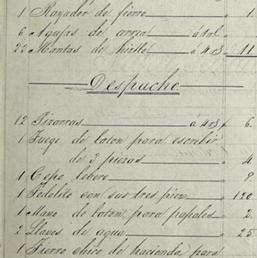 1 Rayador de fierro " 1
6 Agujas de arrea á 1 rl. "
22 Mantas de á 4 r3 " 11
Despacho
12 Pizarras á 4 r3 " 6.
1 Juego de laton para escribir
de 3 piezas " 4
1 Cepo lobero " 2.
1 Teodolito con sus tres pies " 120
1 Mano de laton para papeles " 2.
2 Llaves de agua " 25
1 Fierro chico de hacienda para